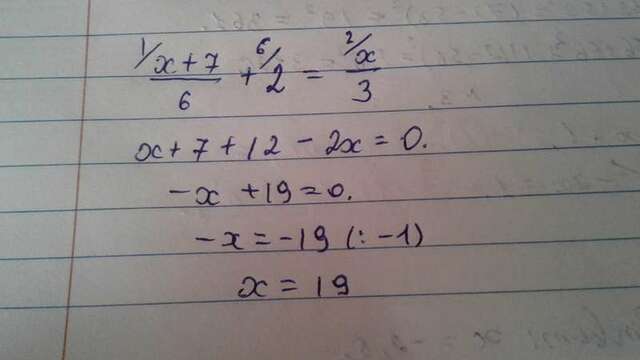 1/ x+7/6 + 6/ 2 = 2/ x/3
x+7+12-2x=0.
-x+19=0.
-x=-19 (:-1)
x=19